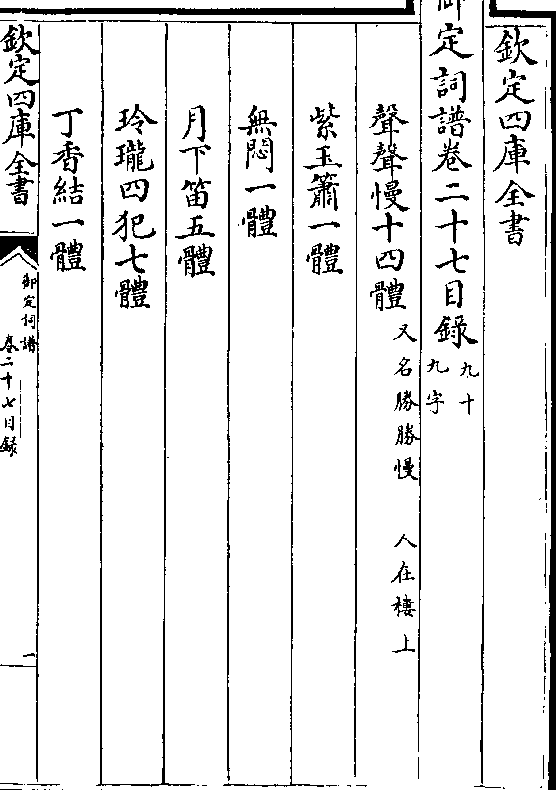 欽定四庫全書
御定詞譜卷二十七目録 九十九字
聲聲慢十四體 又名勝勝慢 人在樓上
紫玉簫一體
無悶一體
月下笛五體
玲瓏四犯七體
丁香結一體
欽定四庫全書
御定詞譜
卷二十七目録
一